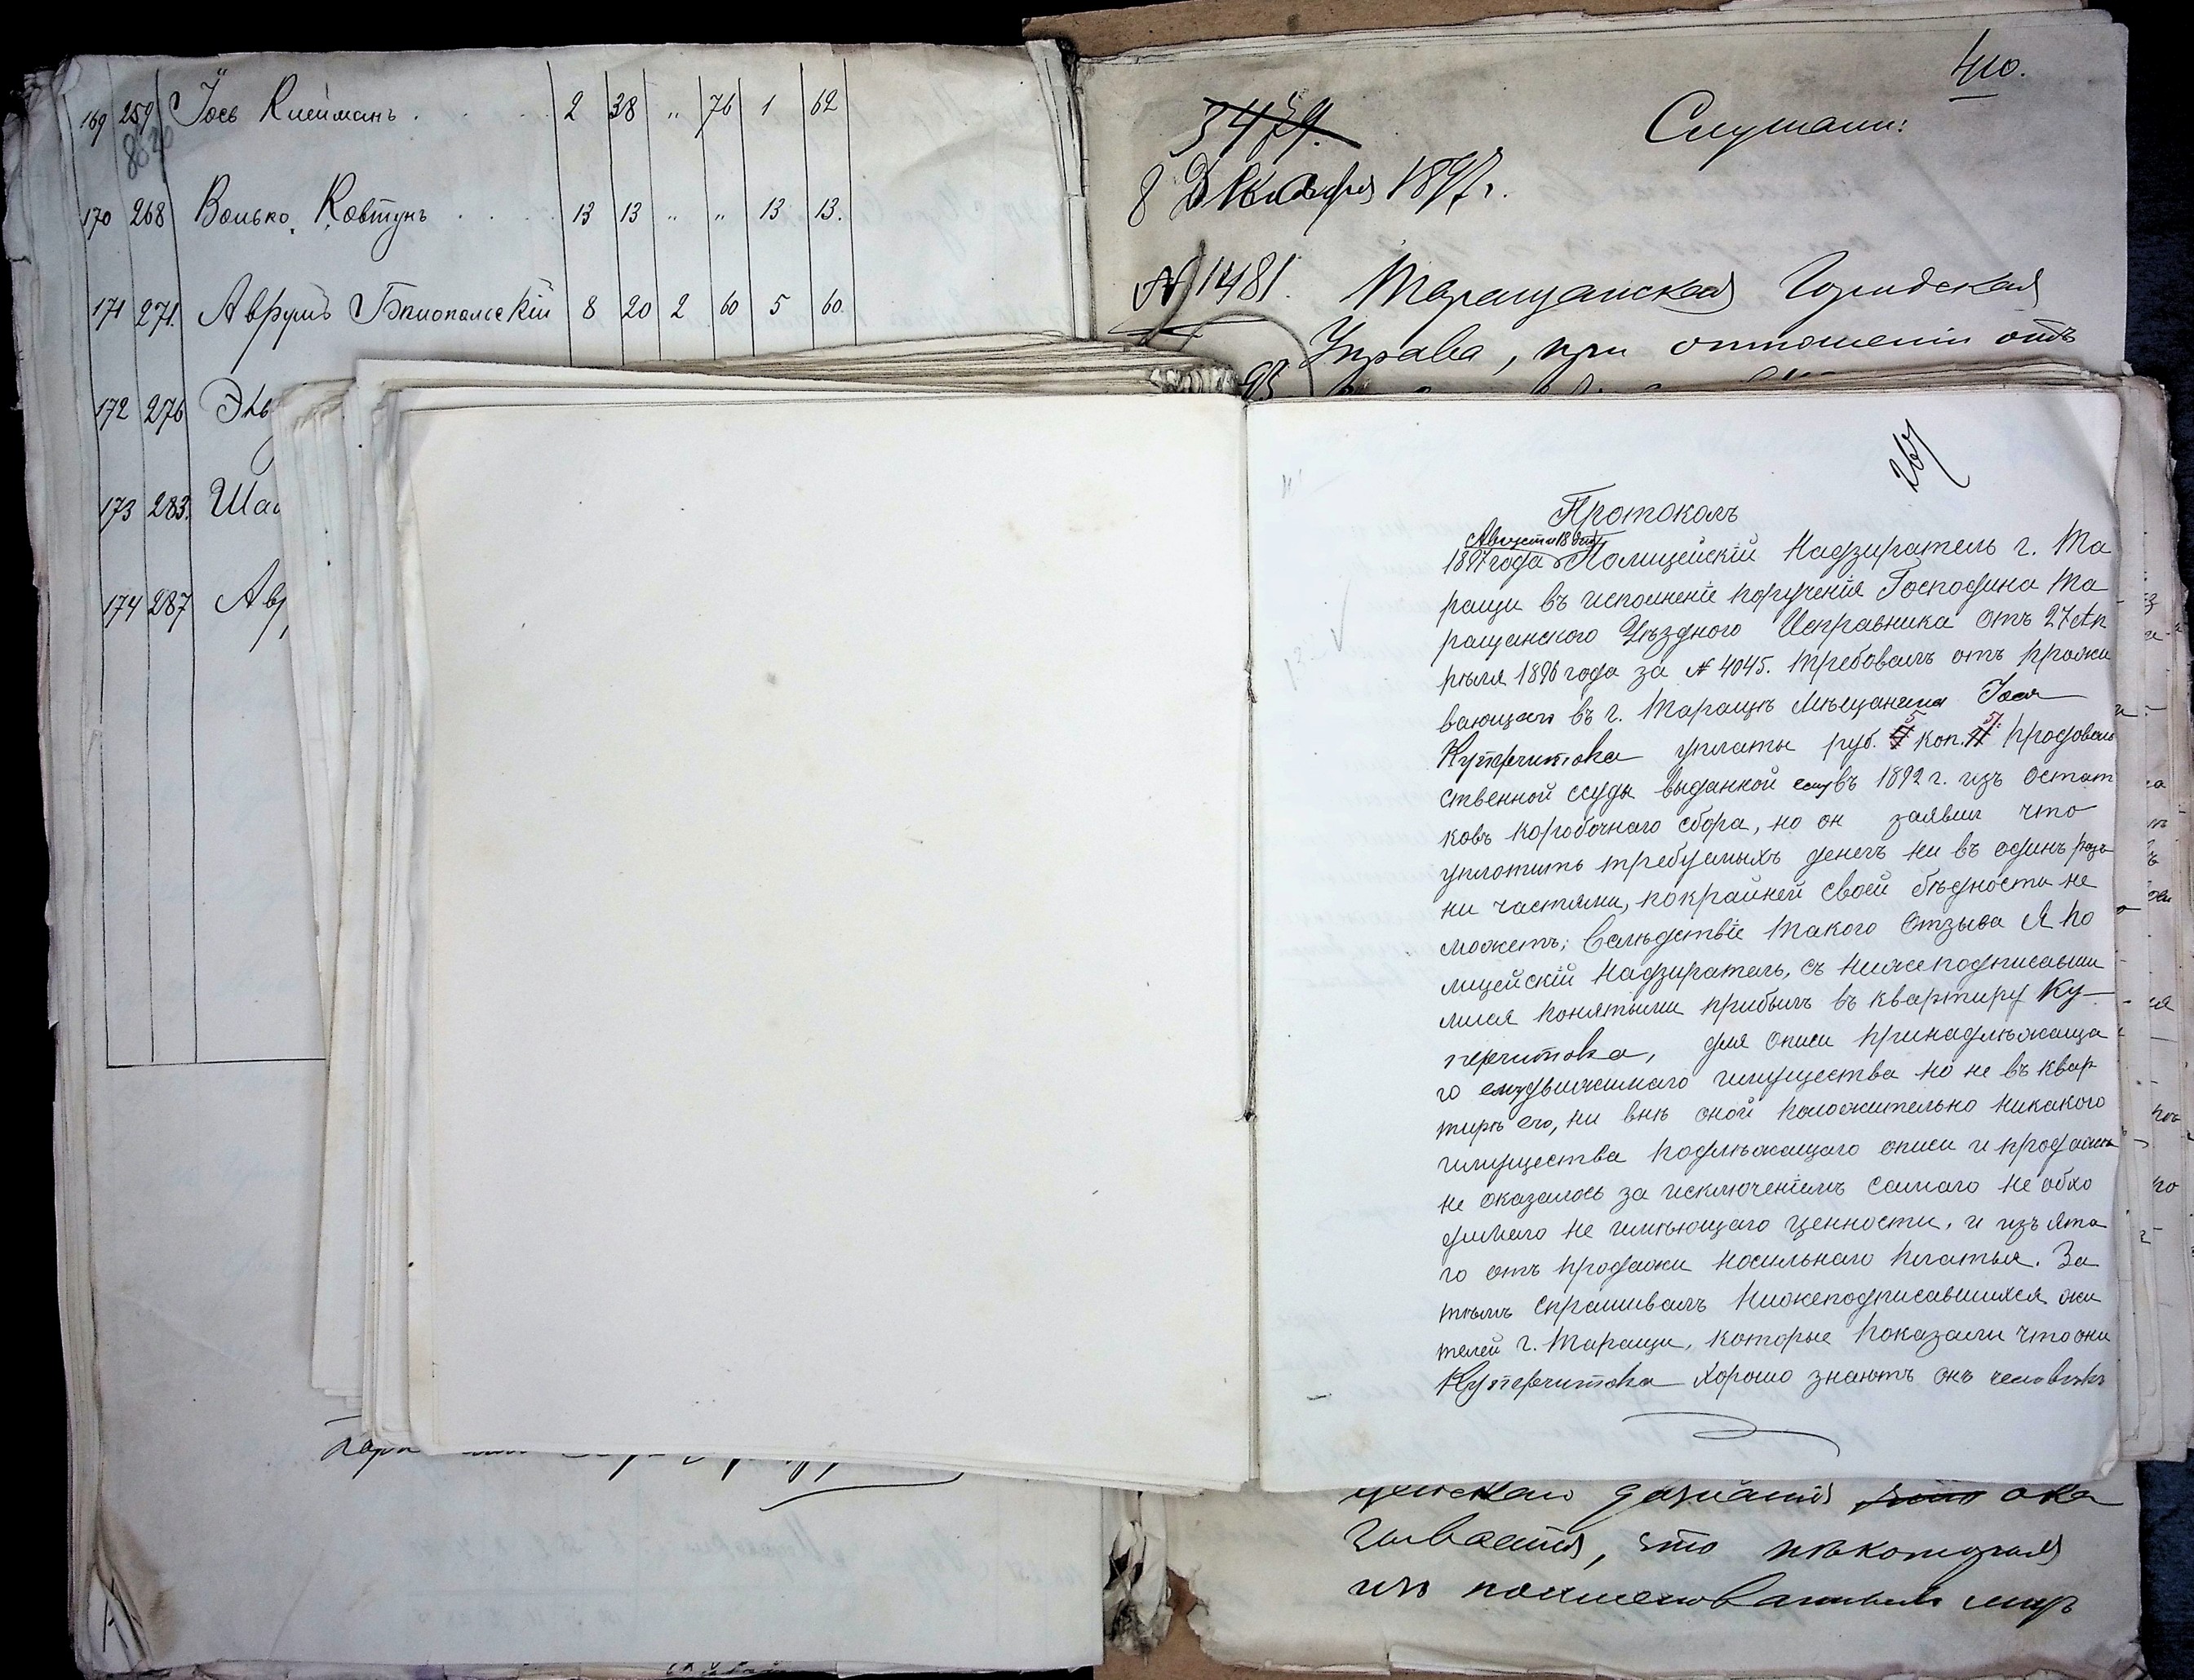 169 259 Іось Клейманъ . . . . 2 38 " 76 1 62
170 268 Волько Ковтунъ . . . . 13 13 " " 13 13.
171 271. Аврумъ Бялопольскій 8 20 2 60 5 60.
172 276
173 283.
174 287
410.
Слушали:
8 Декабря 1897 г.
№ 1481. Таращанская Городская
Управа, при отношеніи отъ
267
Протоколъ
Августа 18 дня
1897 года Полицейскій Надзиратель г. Та
ращи въ исполненіе порученія Господина Та
ращанского Уѣздного Исправника отъ 27 Ап
рѣля 1896 года за № 4045. требовалъ отъ прожи
вающаго въ г. Таращѣ Мѣщанина Іося
Куперштока уплаты руб. 5 коп. 51. продоволь
ственной ссуды выданной ему въ 1892 г. изъ остат
ковъ коробочнаго сбора, но он заявил что
уплотить требуемыхъ денегъ ни въ одинъ разъ
ни частями, по крайней своей бѣдности не
можетъ; Вслѣдствіе такого отзыва Я По
лицейскій Надзиратель, съ нижеподписавши
мися понятыми прибылъ въ квартиру Ку-
перштока, для описи принадлѣжаща
го ему движимаго имущества но не въ квар
тирѣ его, ни внѣ оной положительно никакого
имущества подлѣжащаго описи и продажѣ
не оказалось за исключеніемъ самаго не обхо
димаго не имѣющаго ценности, и изъ ята
го отъ продажи носильнаго платья. За
тѣмъ спрашивалъ Нижеподписавшихся жи
телей г. Таращи, которые показали что они
Куперштока хорошо знаютъ онъ человѣкъ
дознанія что ока
зывается, что нѣкоторыя
изъ поименованныхъ